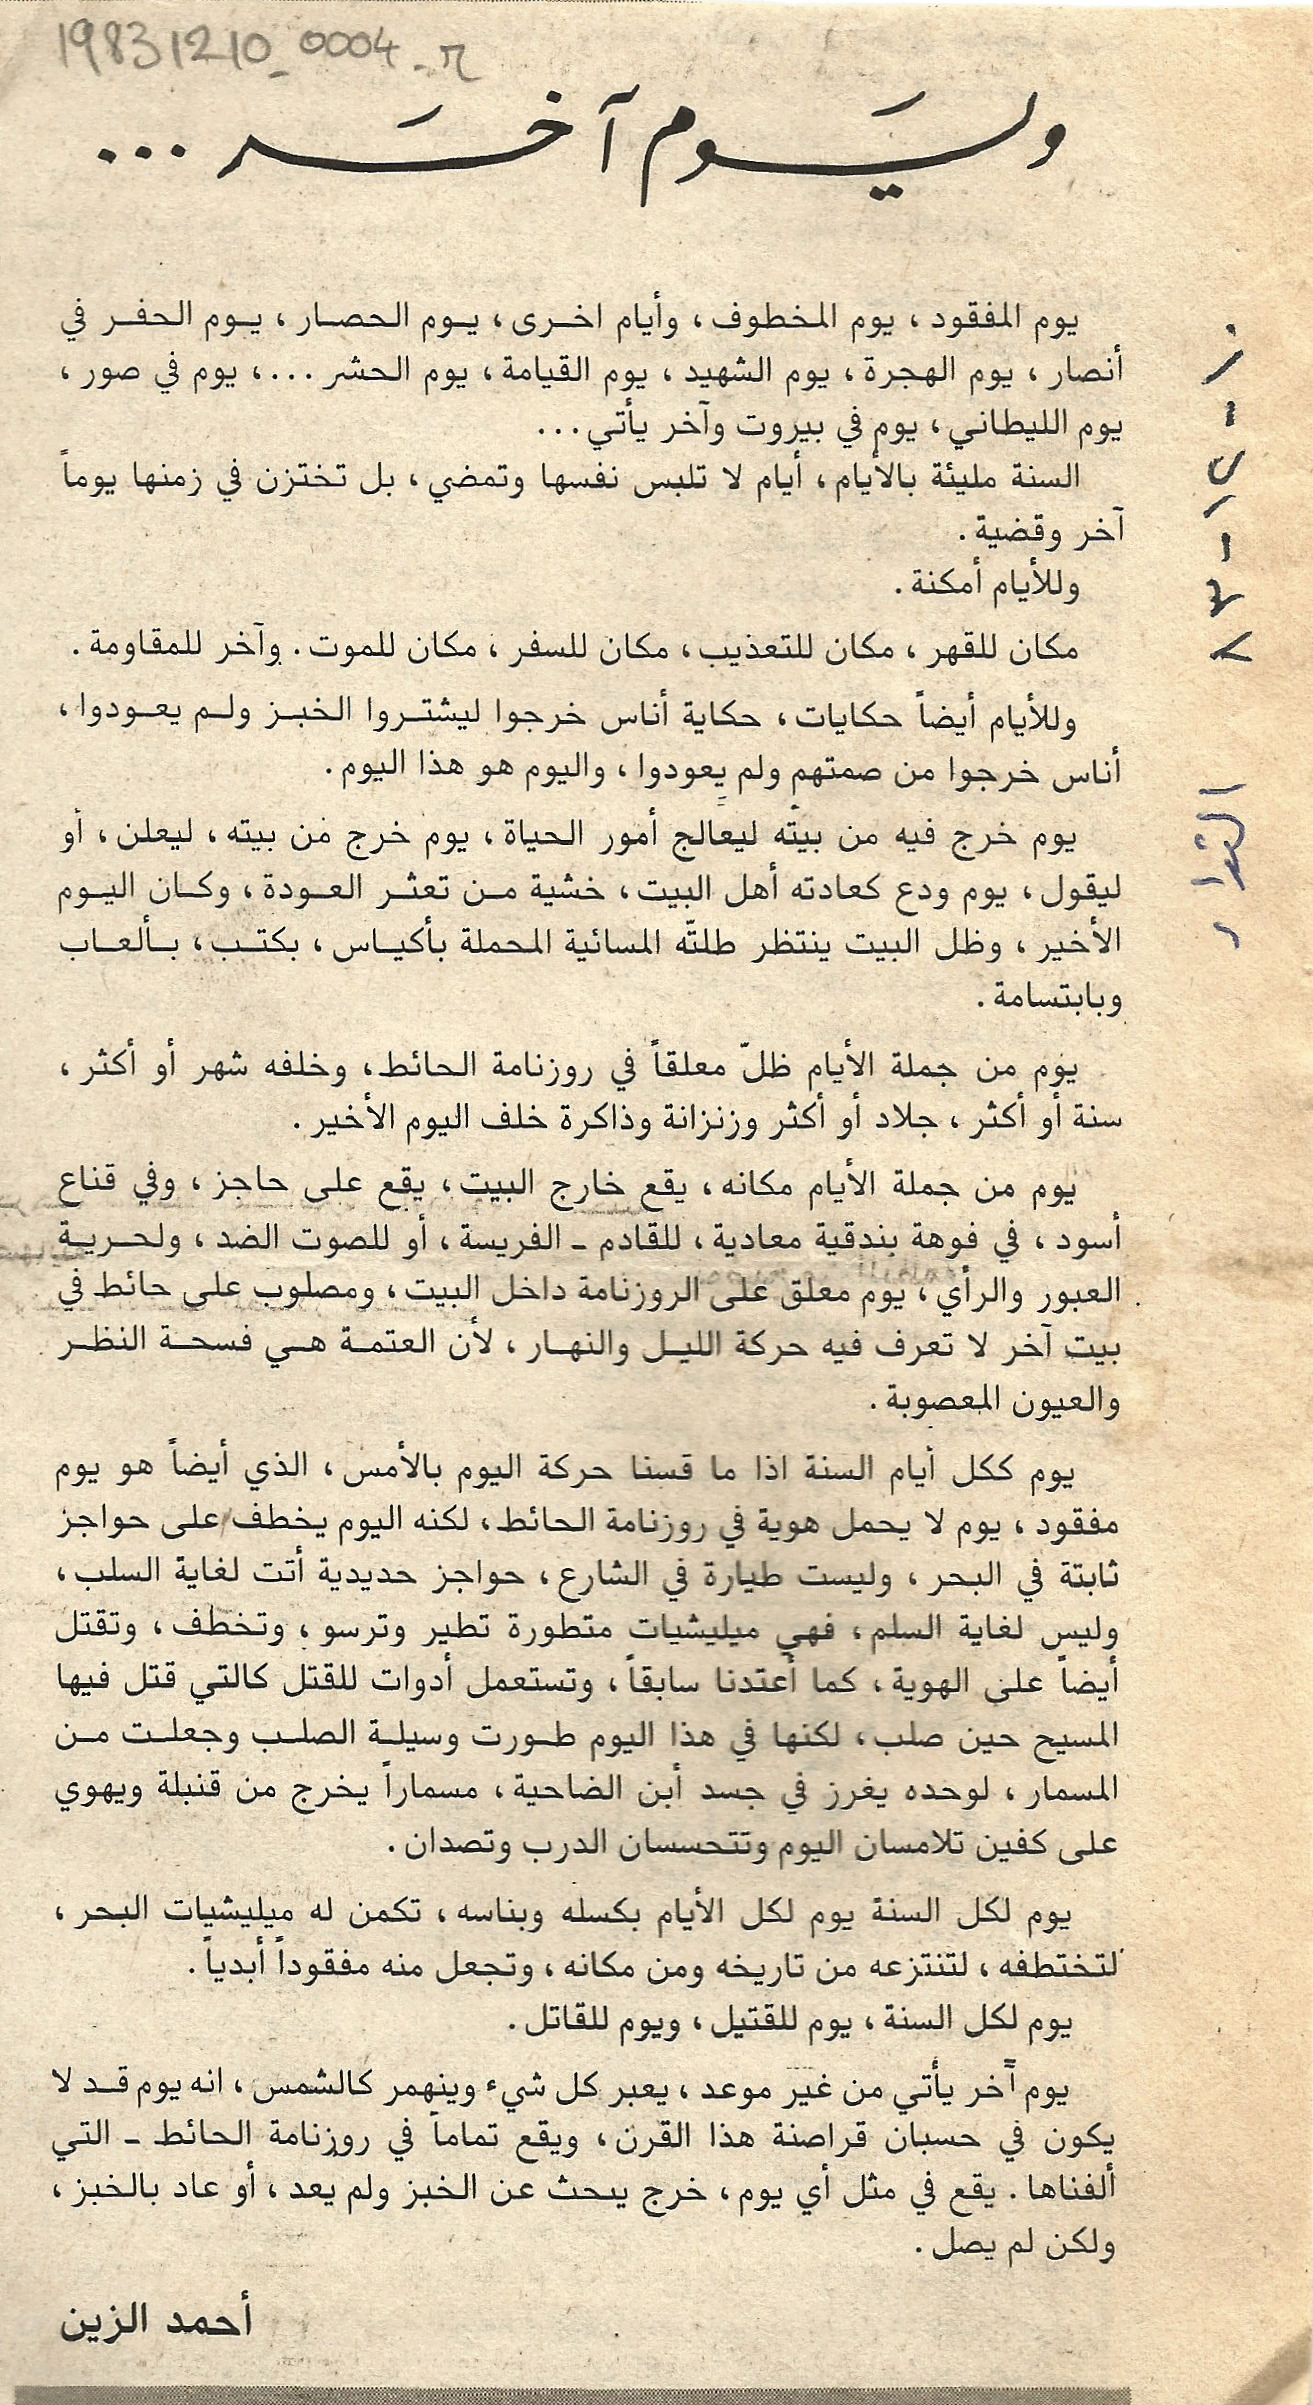 19831210_0004_ر
وليوم آخر ...
يوم المفقود ، يوم المخطوف ، وأيام اخرى ، يوم الحصار ، يوم الحفر في
أنصار ، يوم الهجرة ، يوم الشهيد ، يوم القيامة ، يوم الحشر ... ، يوم في صور ،
يوم الليطاني ، يوم في بيروت وآخر يأتي ...
السنة مليئة بالأيام ، أيام لا تلبس نفسها وتمضي ، بل تختزن في زمنها يوماً
آخر وقضية .
وللأيام أمكنة .
مكان للقهر ، مكان للتعذيب ، مكان للسفر ، مكان للموت . وآخر للمقاومة .
وللأيام أيضاً حكايات ، حكاية أناس خرجوا ليشتروا الخبز ولم يعودوا ،
أناس خرجوا من صمتهم ولم يعودوا ، واليوم هو هذا اليوم .
يوم خرج فيه من بيته ليعالج أمور الحياة ، يوم خرج من بيته ، ليعلن ، أو
ليقول ، يوم ودع كعادته أهل البيت ، خشية من تعثر العودة ، وكان اليوم
الأخير ، وظل البيت ينتظر طلتّه المسائية المحملة بأكياس ، بكتب ، بألعاب
وبابتسامة .
يوم من جملة الأيام ظلّ معلقاً في روزنامة الحائط ، وخلفه شهر أو أكثر ،
سنة أو أكثر ، جلاد أو أكثر وزنزانة وذاكرة خلف اليوم الأخير .
يوم من جملة الأيام مكانه ، يقع خارج البيت ، يقع على حاجز ، وفي قناع
أسود ، في فوهة بندقية معادية ، للقادم ـ الفريسة ، أو للصوت الضد ، ولحرية
العبور والرأي ، يوم معلق على الروزنامة داخل البيت ، ومصلوب على حائط في
بيت آخر لا تعرف فيه حركة الليل والنهار ، لأن العتمة هي فسحة النظر
والعيون المعصوبة .
يوم ككل أيام السنة اذا ما قسنا حركة اليوم بالأمس ، الذي أيضاً هو يوم
مفقود ، يوم لا يحمل هوية في روزنامة الحائط ، لكنه اليوم يخطف على حواجز
ثابتة في البحر ، وليست طيارة في الشارع ، حواجز حديدية أتت لغاية السلب ،
وليس لغاية السلم ، فهي ميليشيات متطورة تطير وترسو ، وتخطف ، وتقتل
أيضاً على الهوية ، كما أعتدنا سابقاً ، وتستعمل أدوات للقتل كالتي قتل فيها
المسيح حين صلب ، لكنها في هذا اليوم طورت وسيلة الصلب وجعلت من
المسمار ، لوحده يغرز في جسد أبن الضاحية ، مسماراً يخرج من قنبلة ويهوي
على كفين تلامسان اليوم وتتحسسان الدرب وتصدان .
يوم لكل السنة يوم لكل الأيام بكسله وبناسه ، تكمن له ميليشيات البحر ،
لتختطفه ، لتنتزعه من تاريخه ومن مكانه ، وتجعل منه مفقوداً أبدياً .
يوم لكل السنة ، يوم للقتيل ، ويوم للقاتل .
يوم آخر يأتي من غير موعد ، يعبر كل شيء وينهمر كالشمس ، انه يوم قد لا
يكون في حسبان قراصنة هذا القرن ، ويقع تماماً في روزنامة الحائط ـ التي
ألفناها . يقع في مثل أي يوم ، خرج يبحث عن الخبز ولم يعد ، أو عاد بالخبز ،
ولكن لم يصل .
أحمد الزين
١٠ - ١٢ - ٨٣